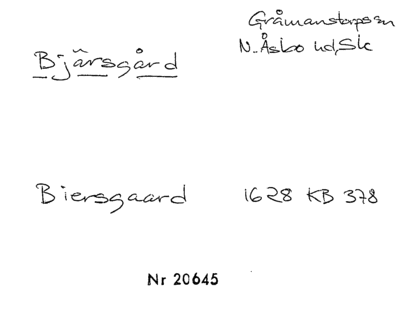 Gråmanstorps sn
Bjärsgård
N. Åsbo hd, Sk
Biersgaard 1628 KB 378
Nr 20645